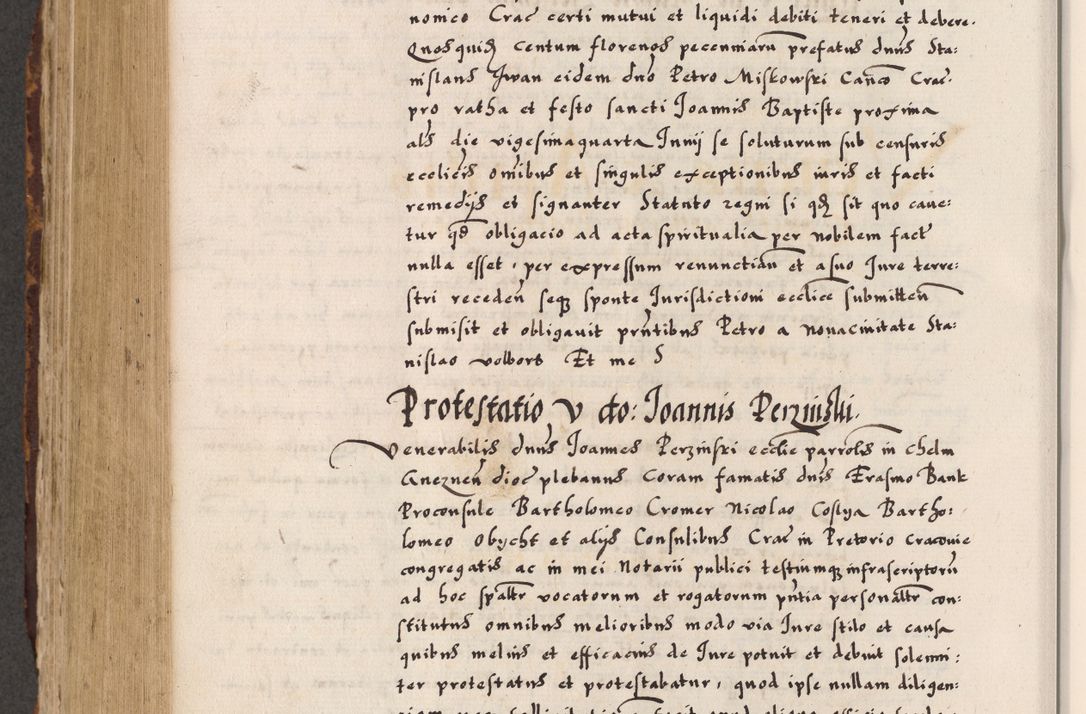 nonico Crac certi mutui et liquidi debiti teneri et debere.
Quosquidem centum florenos pecuniaru prefatus dnus Sta:
nislaus Jwan eidem dno Petro Miskowski Canco Crac.
pro ratha et festo sancti Joannis Baptiste proxima
als die vigesimaquarta Junij se soluturum sub censuris
ecclicis omibus et singulis exceptionibus iuris et facti
remedijs et signanter Statuto regni si qd sit quo cave:
tur qd obligacio ad acta spiritualia per nobilem fact
nulla esset, per expressum renunctiau et a suo Jure terre:
stri receden seq sponte Jurisdictioni ecclice submitten
submisit et obligavit pntibus Petro a novacivitate Sta:
nislao volbors Et me S
Protestatio v dto: Joannis Perzinski.
Venerabilis dnus Joannes Perzinski ecclie parrolis in Chelm
Gneznen dioc plebanus Coram famatis dnis Erasmo Bank
Proconsule Bartholomeo Cromer Nicolao Coslya Bartho:
lomeo Obycht et alijs Consulibus Crac in Pretorio Cracovie
congregatis ac in mei Notarii publici testiumq infrascriptoru
ad hoc spaltr vocatorum et rogatorum pntia personaltr con:
stitutus omnibus melioribus modo via Jure stilo et causa
quibus melius et efficacius de Jure potuit et debuit solenni:
ter protestatus et protestabatur, quod ipse nullam diligen: